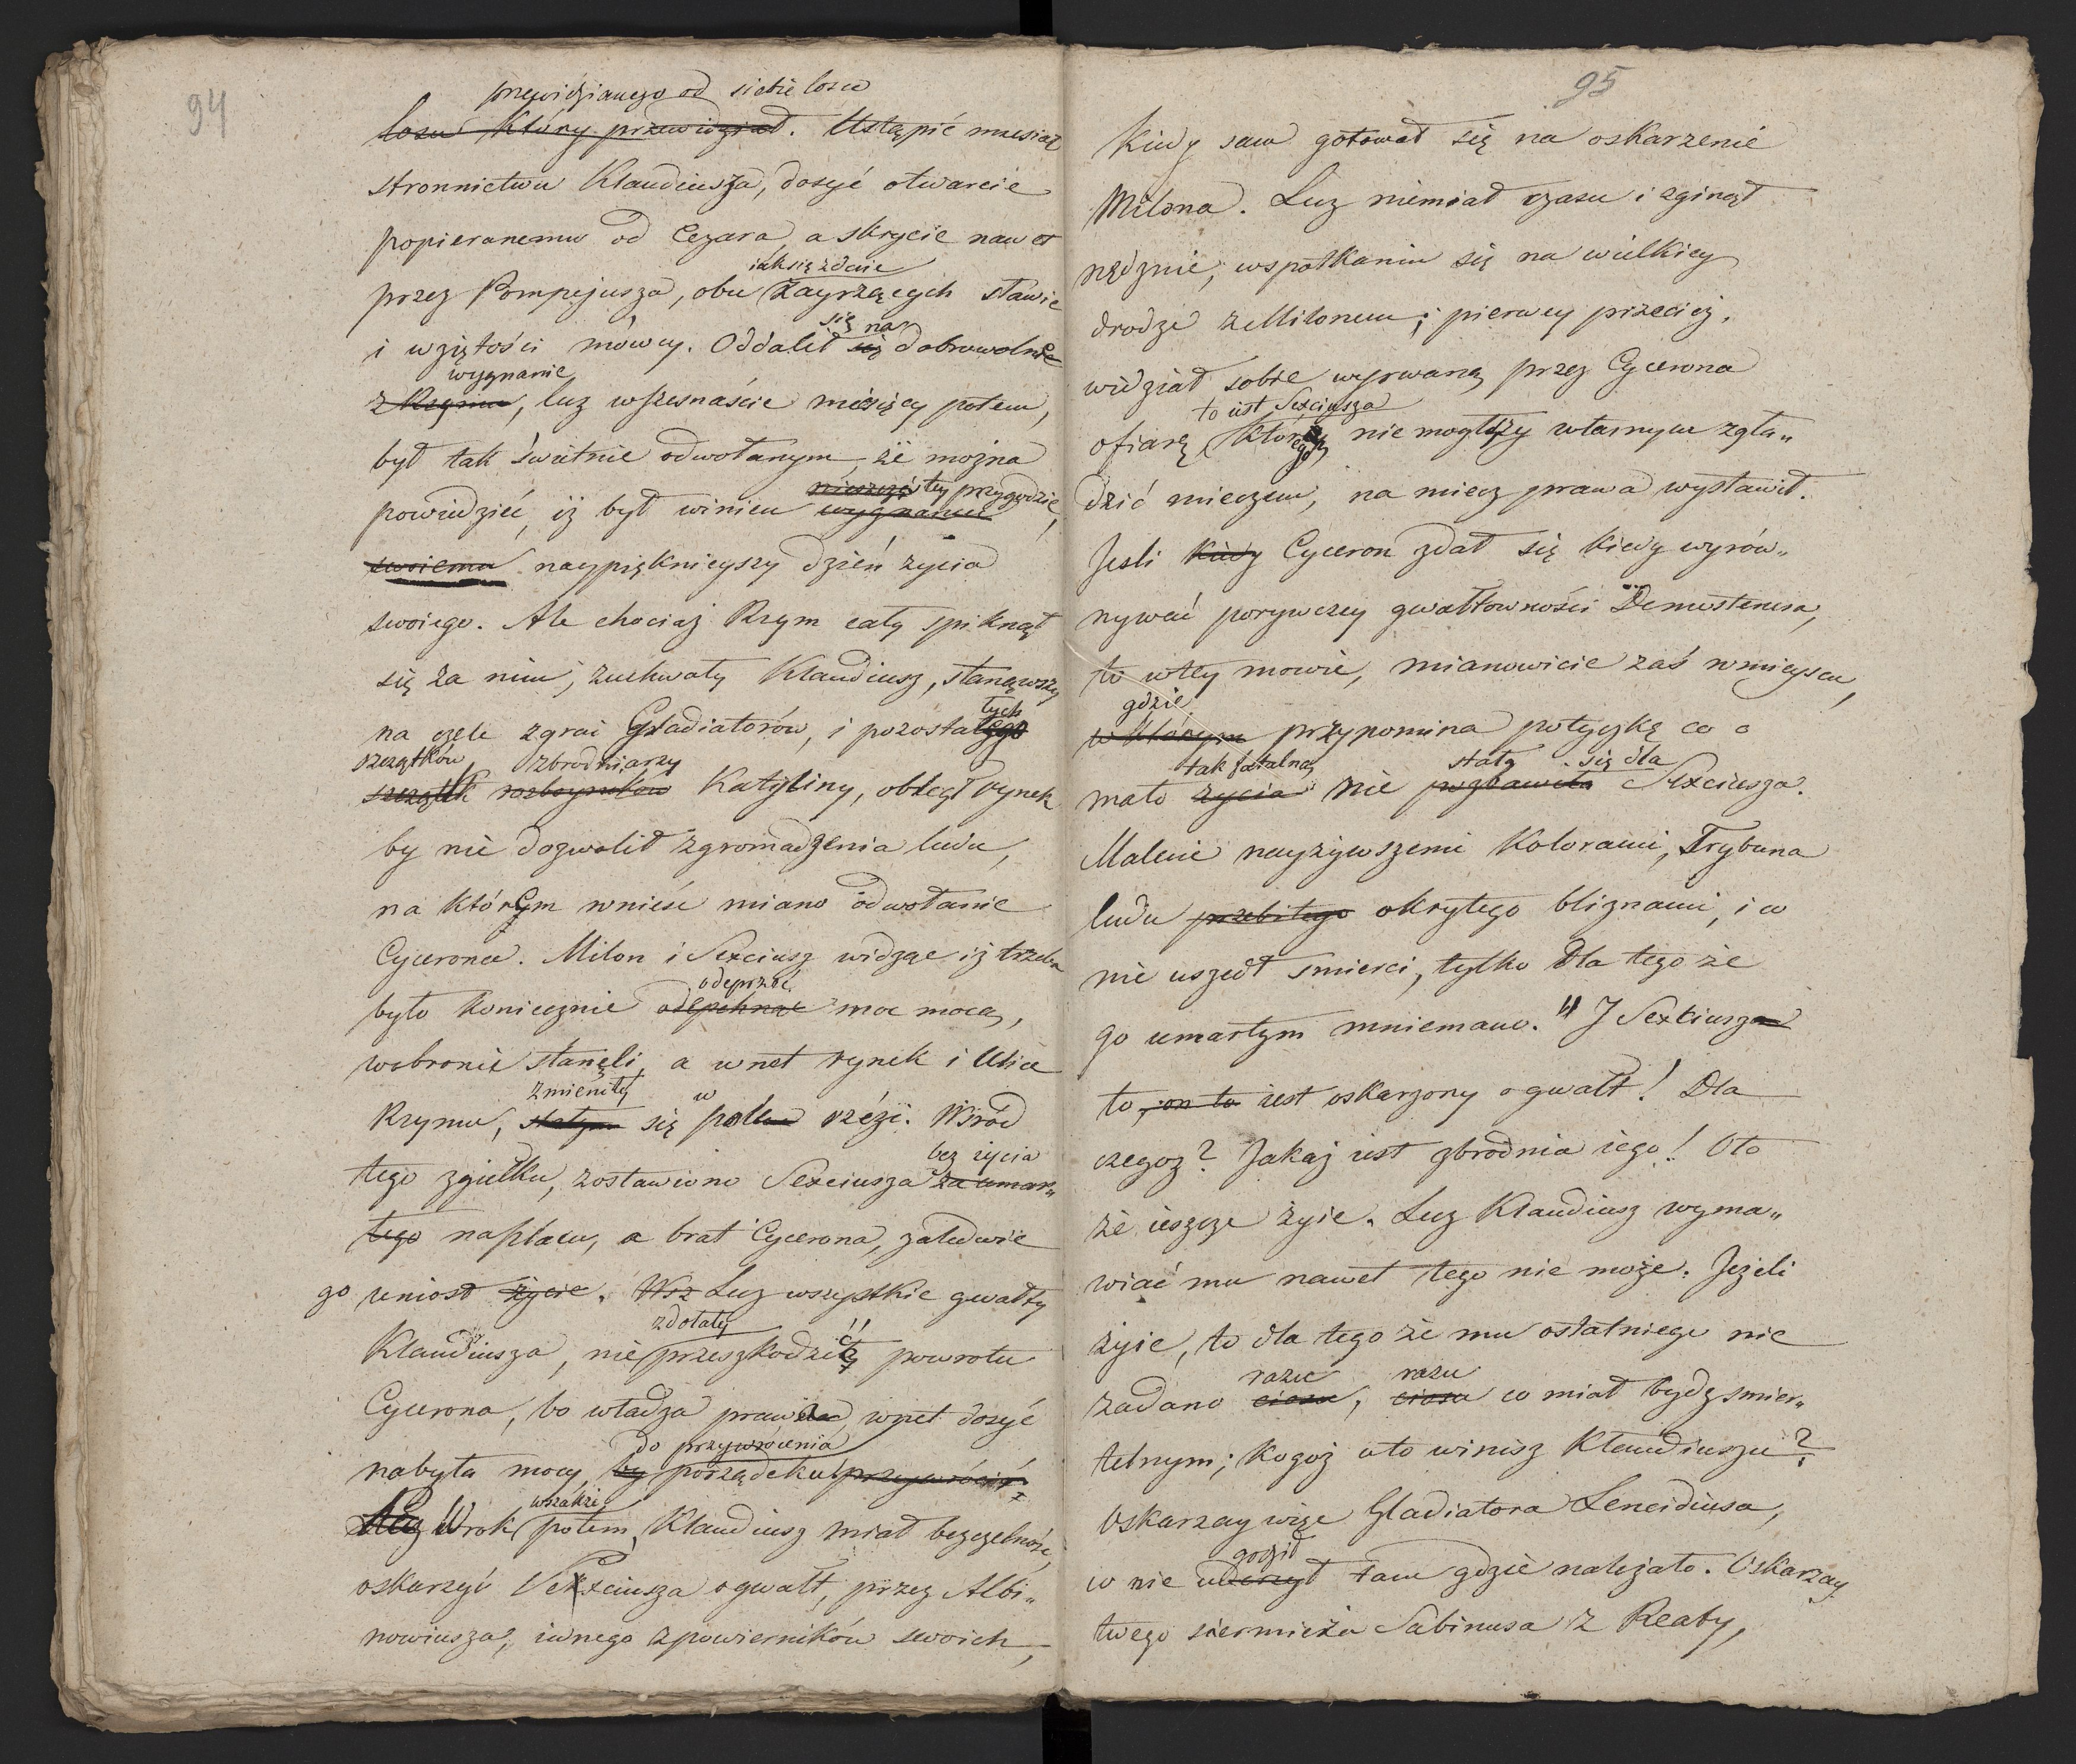 94
przewidzianego od siebie losu
losu który przewidział. Ustąpić musiał
stronnictwu Klaudiusza, dosyć otwarcie
popieranemu od Cezara, a skrycie nawet
iak się zdaie
przez Pompejusza, obu zayrzących sławie
się na
i wziętości mówcy. Oddalił się dobrowolnie
wygnanie
z Rzymu, lecz wszesnaście miesięcy potem,
był tak świetnie odwołanym, że można
tey przygodzie,
powiedzieć, iż był winien wygnaniu
swoiemu naypięknieyszy dzień życia
swoiego. Ale chociaż Rzym cały spiknął
się za nim, zuchwały Klaudiusz, stanąwszy
tych
na czele zgrai Gladiatorów, i pozostałego
szczątków zbrodniarzy
szczątk rozboyników Katyliny, obległ rynek
by nie dozwolił zgromadzenia ludu,
na którym wnieść miano odwołanie
Cycerona. Milon i Sexciusz widząc iż trzeba
odeprzeć
było koniecznie odepchnąć moc mocą,
wobronie stanęli, a wnet rynek i Ulice
zmieniły w
Rzymu, stały się pole rzézi. Wśród
bez życia
tego zgiełku, zostawiono Sexciusza za umar„
łego naplacu, a brat Cycerona, zaledwie
go uniosł życie. Wsz Lecz wszystkie gwałty
zdołały
Klaudiusza, nie przeszkodzić powrotu
Cycerona, bo władza prawa wnet dosyć
do przywrócenia
nabyła mocy, by porządeku przywrócić.
wszakże
Lecz Wrok potem, Klaudiusz miał bezczelność,
oskarzyć Sexciusza ogwałt, przez Albi„
nowiusza, iednego zpowierników swoich,
95
Kiedy sam gotował się na oskarzenie
Milona. Lecz niemiał czasu i zginął
nędznie, wspotkaniu się na wielkiey
drodze z Milonem; pierwey przecież,
widział sobie wyrwaną przez Cycerona
to iest Sexciusza
ofiarę którego niemogłszy własnym zgła„
dzić mieczem, na miecz prawa wystawił.
Jesli kiedy Cyceron zdał się kiedy wyrów„
nywać porywczey gwałtowności Demostenesa,
to wtey mowie, mianowicie zaś wmieyscu,
gdzie
w którym przypomina potyczkę co o
tak fatalną stały się dla
mało życia nie pozbawiła Sexciusza.
Maluie nayżywszemi kolorami, Trybuna
ludu przebitego okrytego bliznami, i co
nie uszedł smierci, tylko dla tego że
go umarłym mniemano. "J Sexciusz
to, on to iest oskarzony ogwałt! Dla
czegoz? Jakaż iest zbrodnia iego! Oto
że ieszcze żyie. Lecz Klaudiusz wyma„
wiać mu nawet tego nie może. Jeżeli
żyie, to dla tego że mu ostatniego nie
razu razu
zadano ciosu, ciosu co miał bydz smier„
telnym; kogoż oto winisz Klaudiuszu?
Oskarzay więc Gladiatora Lencidiusa,
godził
co nie uderzył tam gdzie należało. Oskarzay
twego siermieża Sabinusa z Reaty,